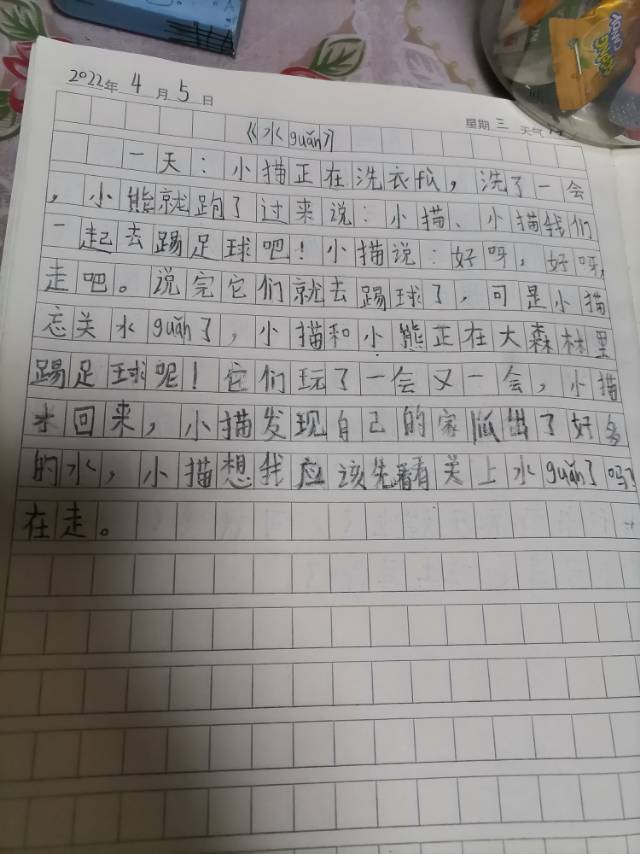 2022年 4 月 5 日
星期 三 天气
《水guǎn》
一天：小猫正在洗衣服，洗了一会
，小熊就跑了过来说：小猫、小猫我们
一起去踢足球吧！小猫说：好呀，好呀，
走吧。说完它们就去踢球了，可是小猫
忘关水guǎn了，小猫和小熊正在大森林里
踢足球呢！它们玩了一会又一会，小猫
回来，小猫发现自己的家流出了好多
的水，小猫想我应该先看看关上水guǎn了吗？
在走。